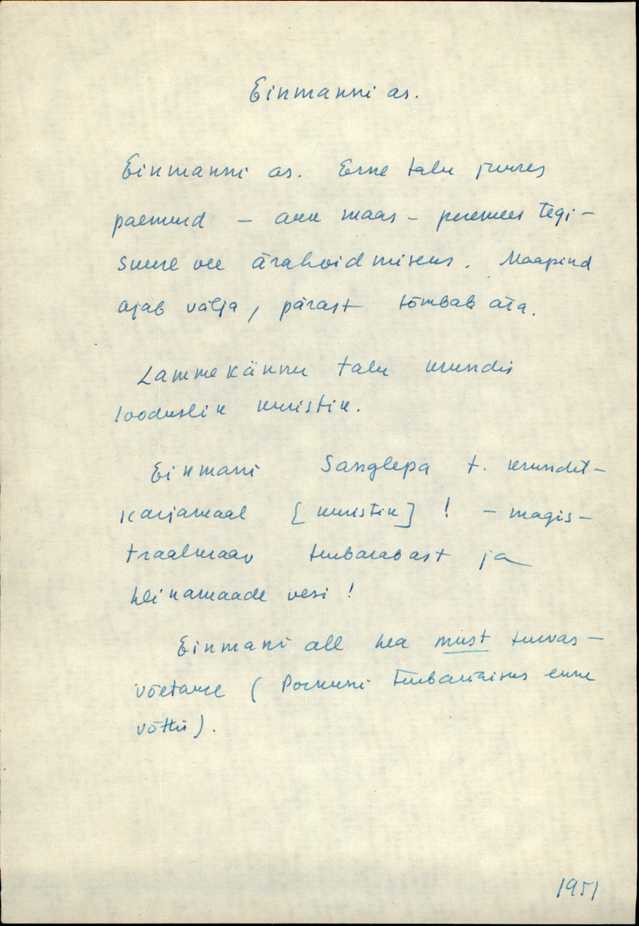 Einmanni as.
Einmanni as. Erne talu juures
paemurd – auk maas – peremees tegi –
suure vee ärahoidmiseks. Maapind
ajab välja, pärast tõmbab ära.
Lammekännu talu krundis
looduslik kuristik.
Einmani Sanglepa t. krundil –
karjamaal [kuristik] ! – magis-
traalkraav turbarabast ja
heinamaade vesi !
Einmani all hea must turvas –
võetakse ( Porkuni turbatööstus enne
võttis ).
1951